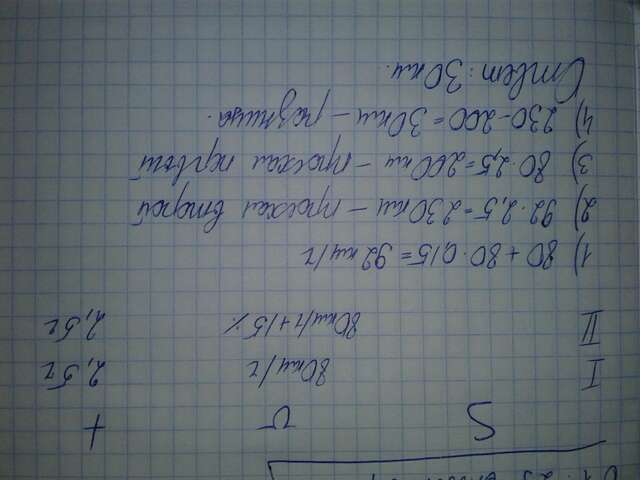 S v t
I 80 км/ч 2,5 ч
II 80 км/ч + 15 % 2,5 ч
1) 80 + 80 · 0,15 = 92 км/ч
2) 92 · 2,5 = 230 км – проехал второй
3) 80 · 2,5 = 200 км – проехал первый
4) 230 - 200 = 30 км – разница.
Ответ: 30 км.